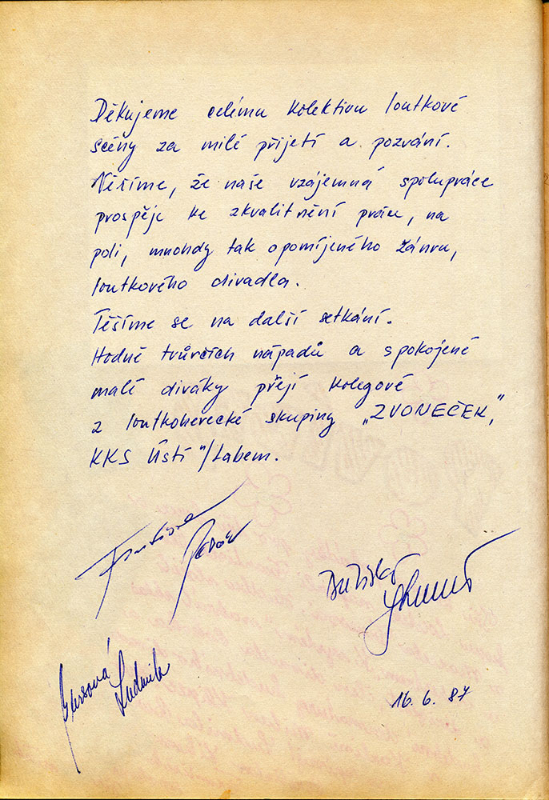 Děkujeme celému kolektivu loutkové
scény za milé přijetí a pozvání.
Věříme, že naše vzájemná spolupráce
prospěje ke zkvalitnění práce, na
poli, mnohdy tak opomíjeného žánru,
loutkového divadla.
Těšíme se na další setkání.
Hodně tvůrčích nápadů a spokojené
malé diváky přejí kolegové
z loutkoherecké skupiny „ZVONEČEK,"
KKS Ústí n/Labem.
Ludmila
16. 6. 87